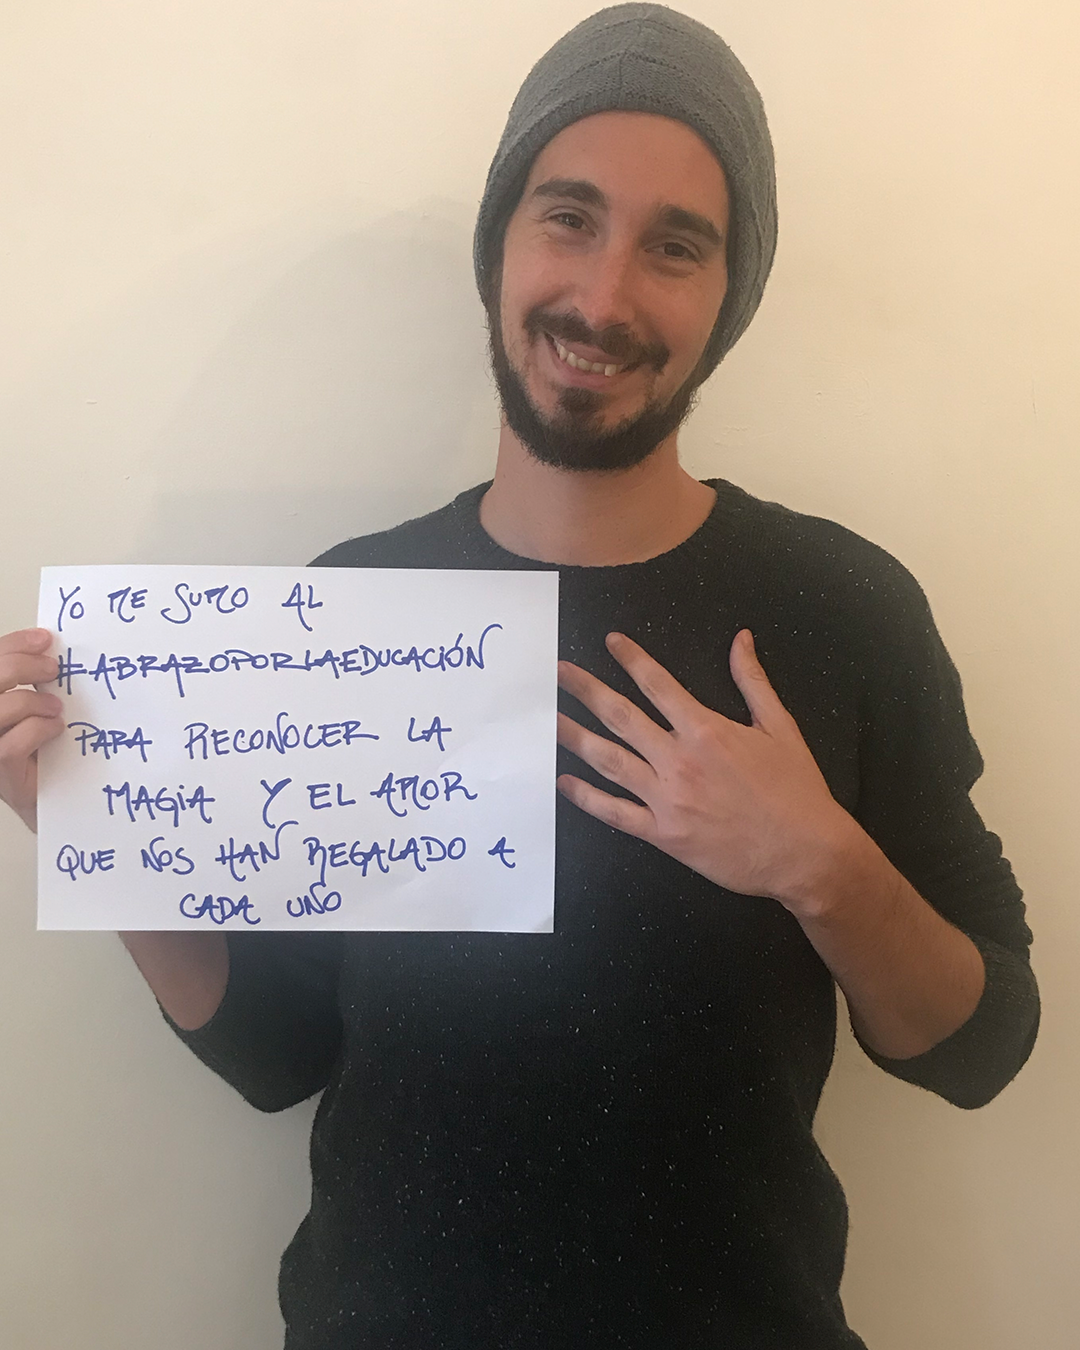 YO ME SUMO AL
#ABRAZOPORLAEDUCACIÓN
PARA RECONOCER LA
MAGiA Y EL AMOR
QUE NOS HAN REGALADO A
CADA UNO